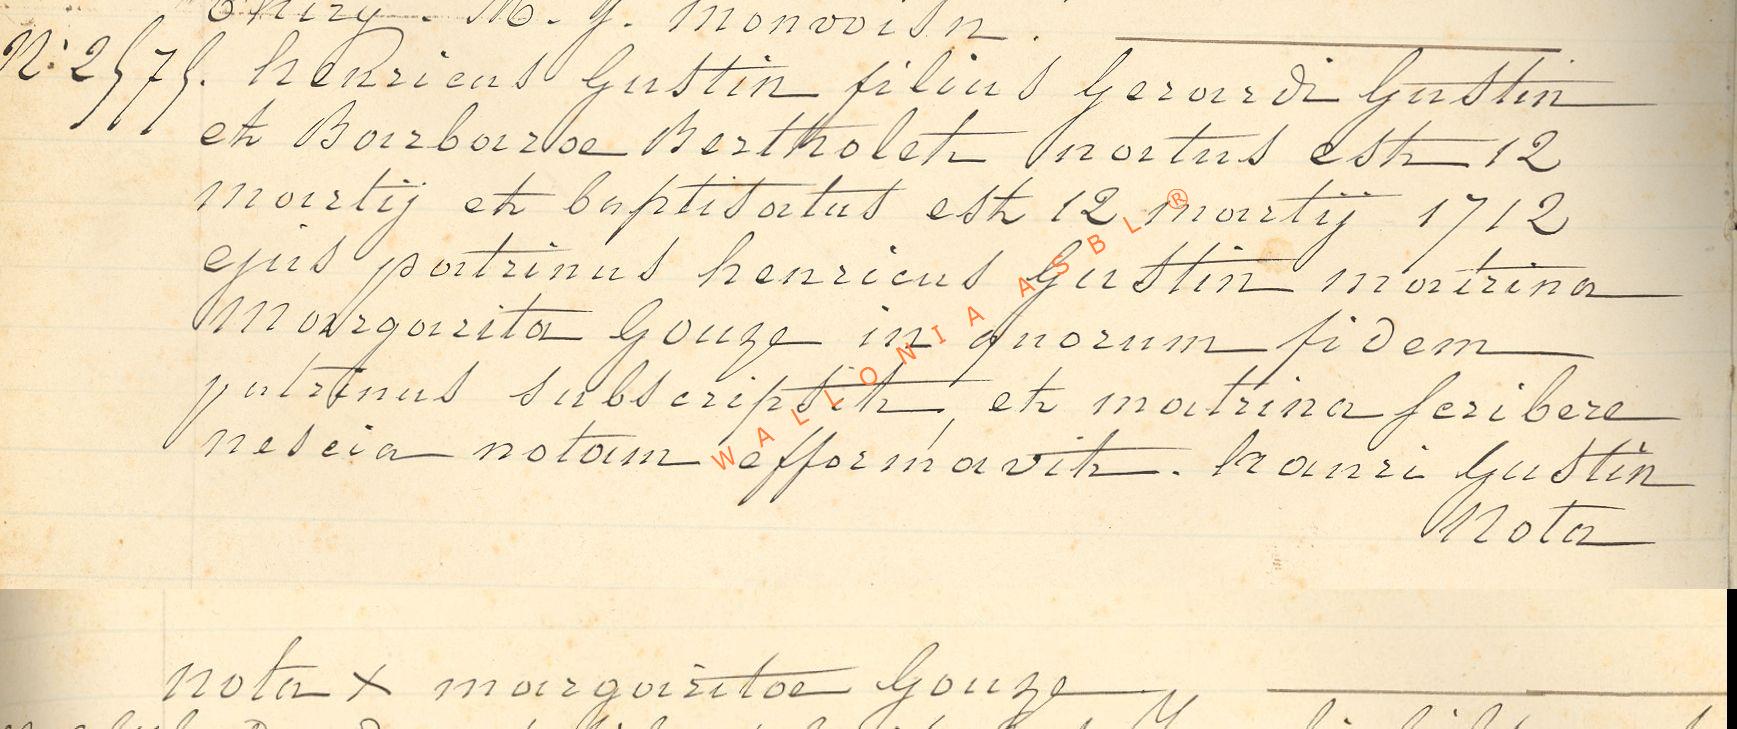 Thiry. M. J. Monvoisn.
N: 257S. henricus Gustin filius Gerardi Gustin
et Barbarae Bertholet natus est 12
martij et baptisatus est 12 martij 1712
ejus patrinus henricus Gustin matrina
Margarita Gouze in quorum fidem
patrinus subscripsit, et matrina scribere
nescia notam efformavit. hanri Gustin
Nota
nota x margaritae Gouze
WALLONIA ASBL ®